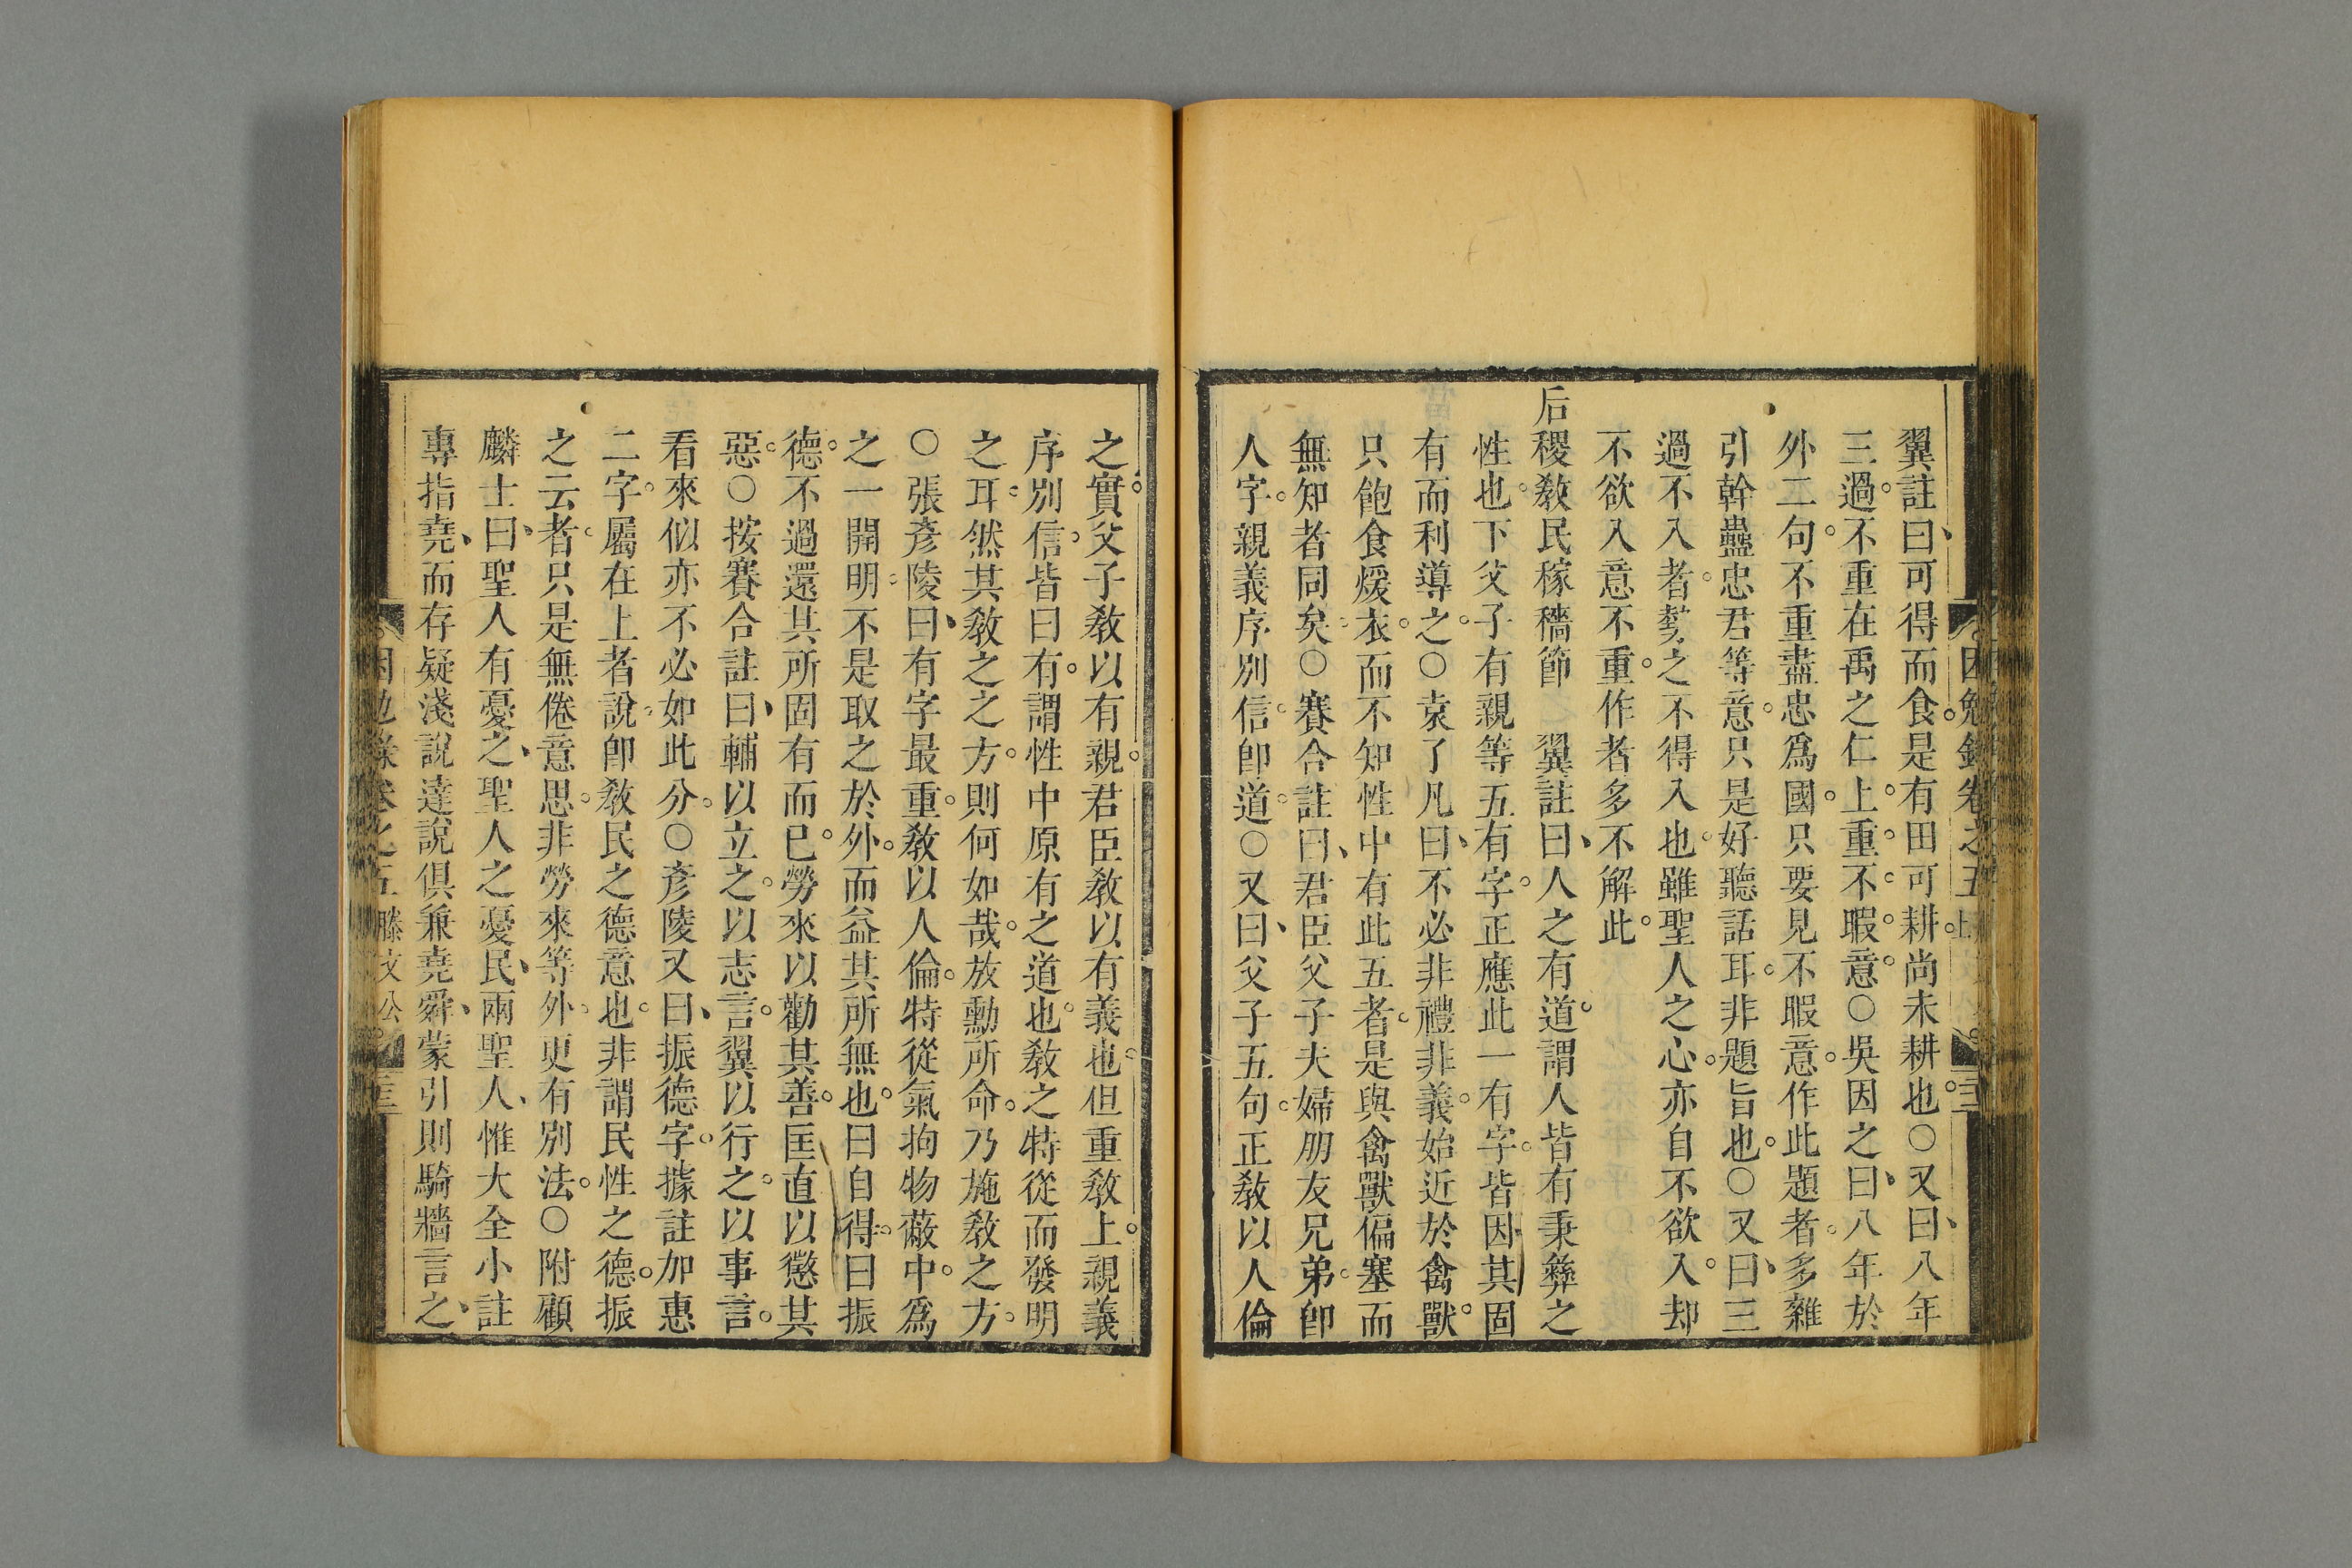 翼註曰可得而食是有田可耕尚未耕也○又曰八年
三過不重在禹之仁上重不暇意○吳因之曰八年於
外二句不重盡忠爲國只要見不暇意作此題者多雜
引幹蠱忠君等意只是好聽話耳非題旨也○又曰三
過不入者勢之不得入也雖聖人之心亦自不欲入却
不欲入意不重作者多不解此
后稷敎民稼穡節 翼註曰人之有道謂人皆有秉彝之
性也下父子有親等五有字正應此一有字皆因其固
有而利導之○袁了凡曰不必非禮非義始近於禽獸
只飽食煖衣而不知性中有此五者是與禽獸偏塞而
無知者同矣○賽合註曰君臣父子夫婦朋友兄弟卽
人字親義序別信卽道○又曰父子五句正敎以人倫
之實父子敎以有親君臣敎以有義也但重敎上親義
序別信皆曰有謂性中原有之道也敎之特從而發明
之耳然其敎之之方則何如哉放勳所命乃施敎之方
○張彥陵曰有字最重敎以人倫特從氣拘物蔽中爲
之一開明不是取之於外而益其所無也曰自得曰振
德不過還其所固有而已勞來以勸其善匡直以懲其
惡○按賽合註曰輔以立之以志言翼以行之以事言
看來似亦不必如此分○彥陵又曰振德字據註加惠
二字屬在上者說卽敎民之德意也非謂民性之德振
之云者只是無倦意思非勞來等外更有別法○附顧
麟士曰聖人有憂之聖人之憂民兩聖人惟大全小註
專指堯而存疑淺說達說俱兼堯舜蒙引則騎牆言之
困勉錄卷之五 滕文公